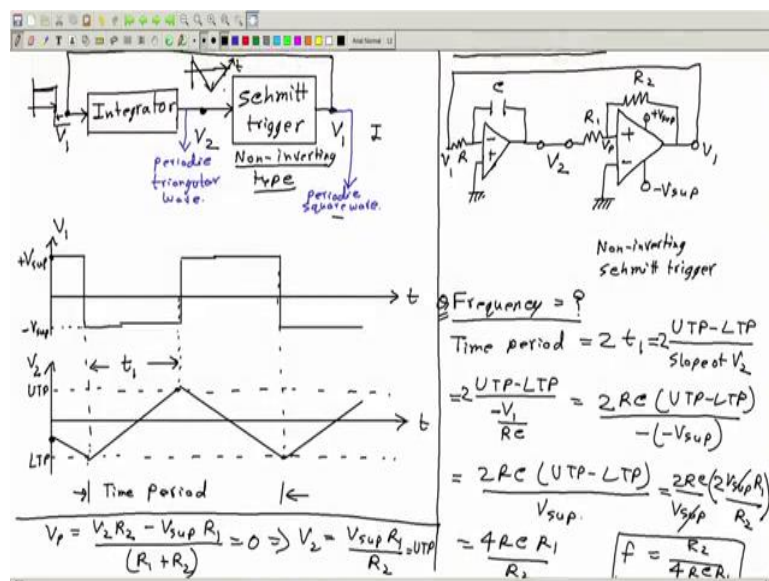 Arial Normal 12
t
V1
Integrator
V2
Schmitt
trigger
V1
I
Non-inverting
type
periodic
triangular
wave.
periodic
square wave.
V1
+Vsup
-Vsup
t
t1
V2
UTP
LTP
t
Time Period
Vp = (V2 R2 - Vsup R1) / (R1 + R2) = 0 => V2 = Vsup R1 / R2 = UTP
C
R2
R
R1
Vp
+Vsup
V1
V2
V1
-Vsup
Non-inverting
Schmitt trigger
Frequency = ?
Time period = 2 t1 = 2 (UTP-LTP) / Slope of V2
= 2 (UTP-LTP) / (-V1 / RC) = 2RC (UTP-LTP) / -(-Vsup)
= 2RC (UTP-LTP) / Vsup. = 2RC / Vsup (2Vsup R1 / R2)
= 4RC R1 / R2
f = R2 / 4RC R1